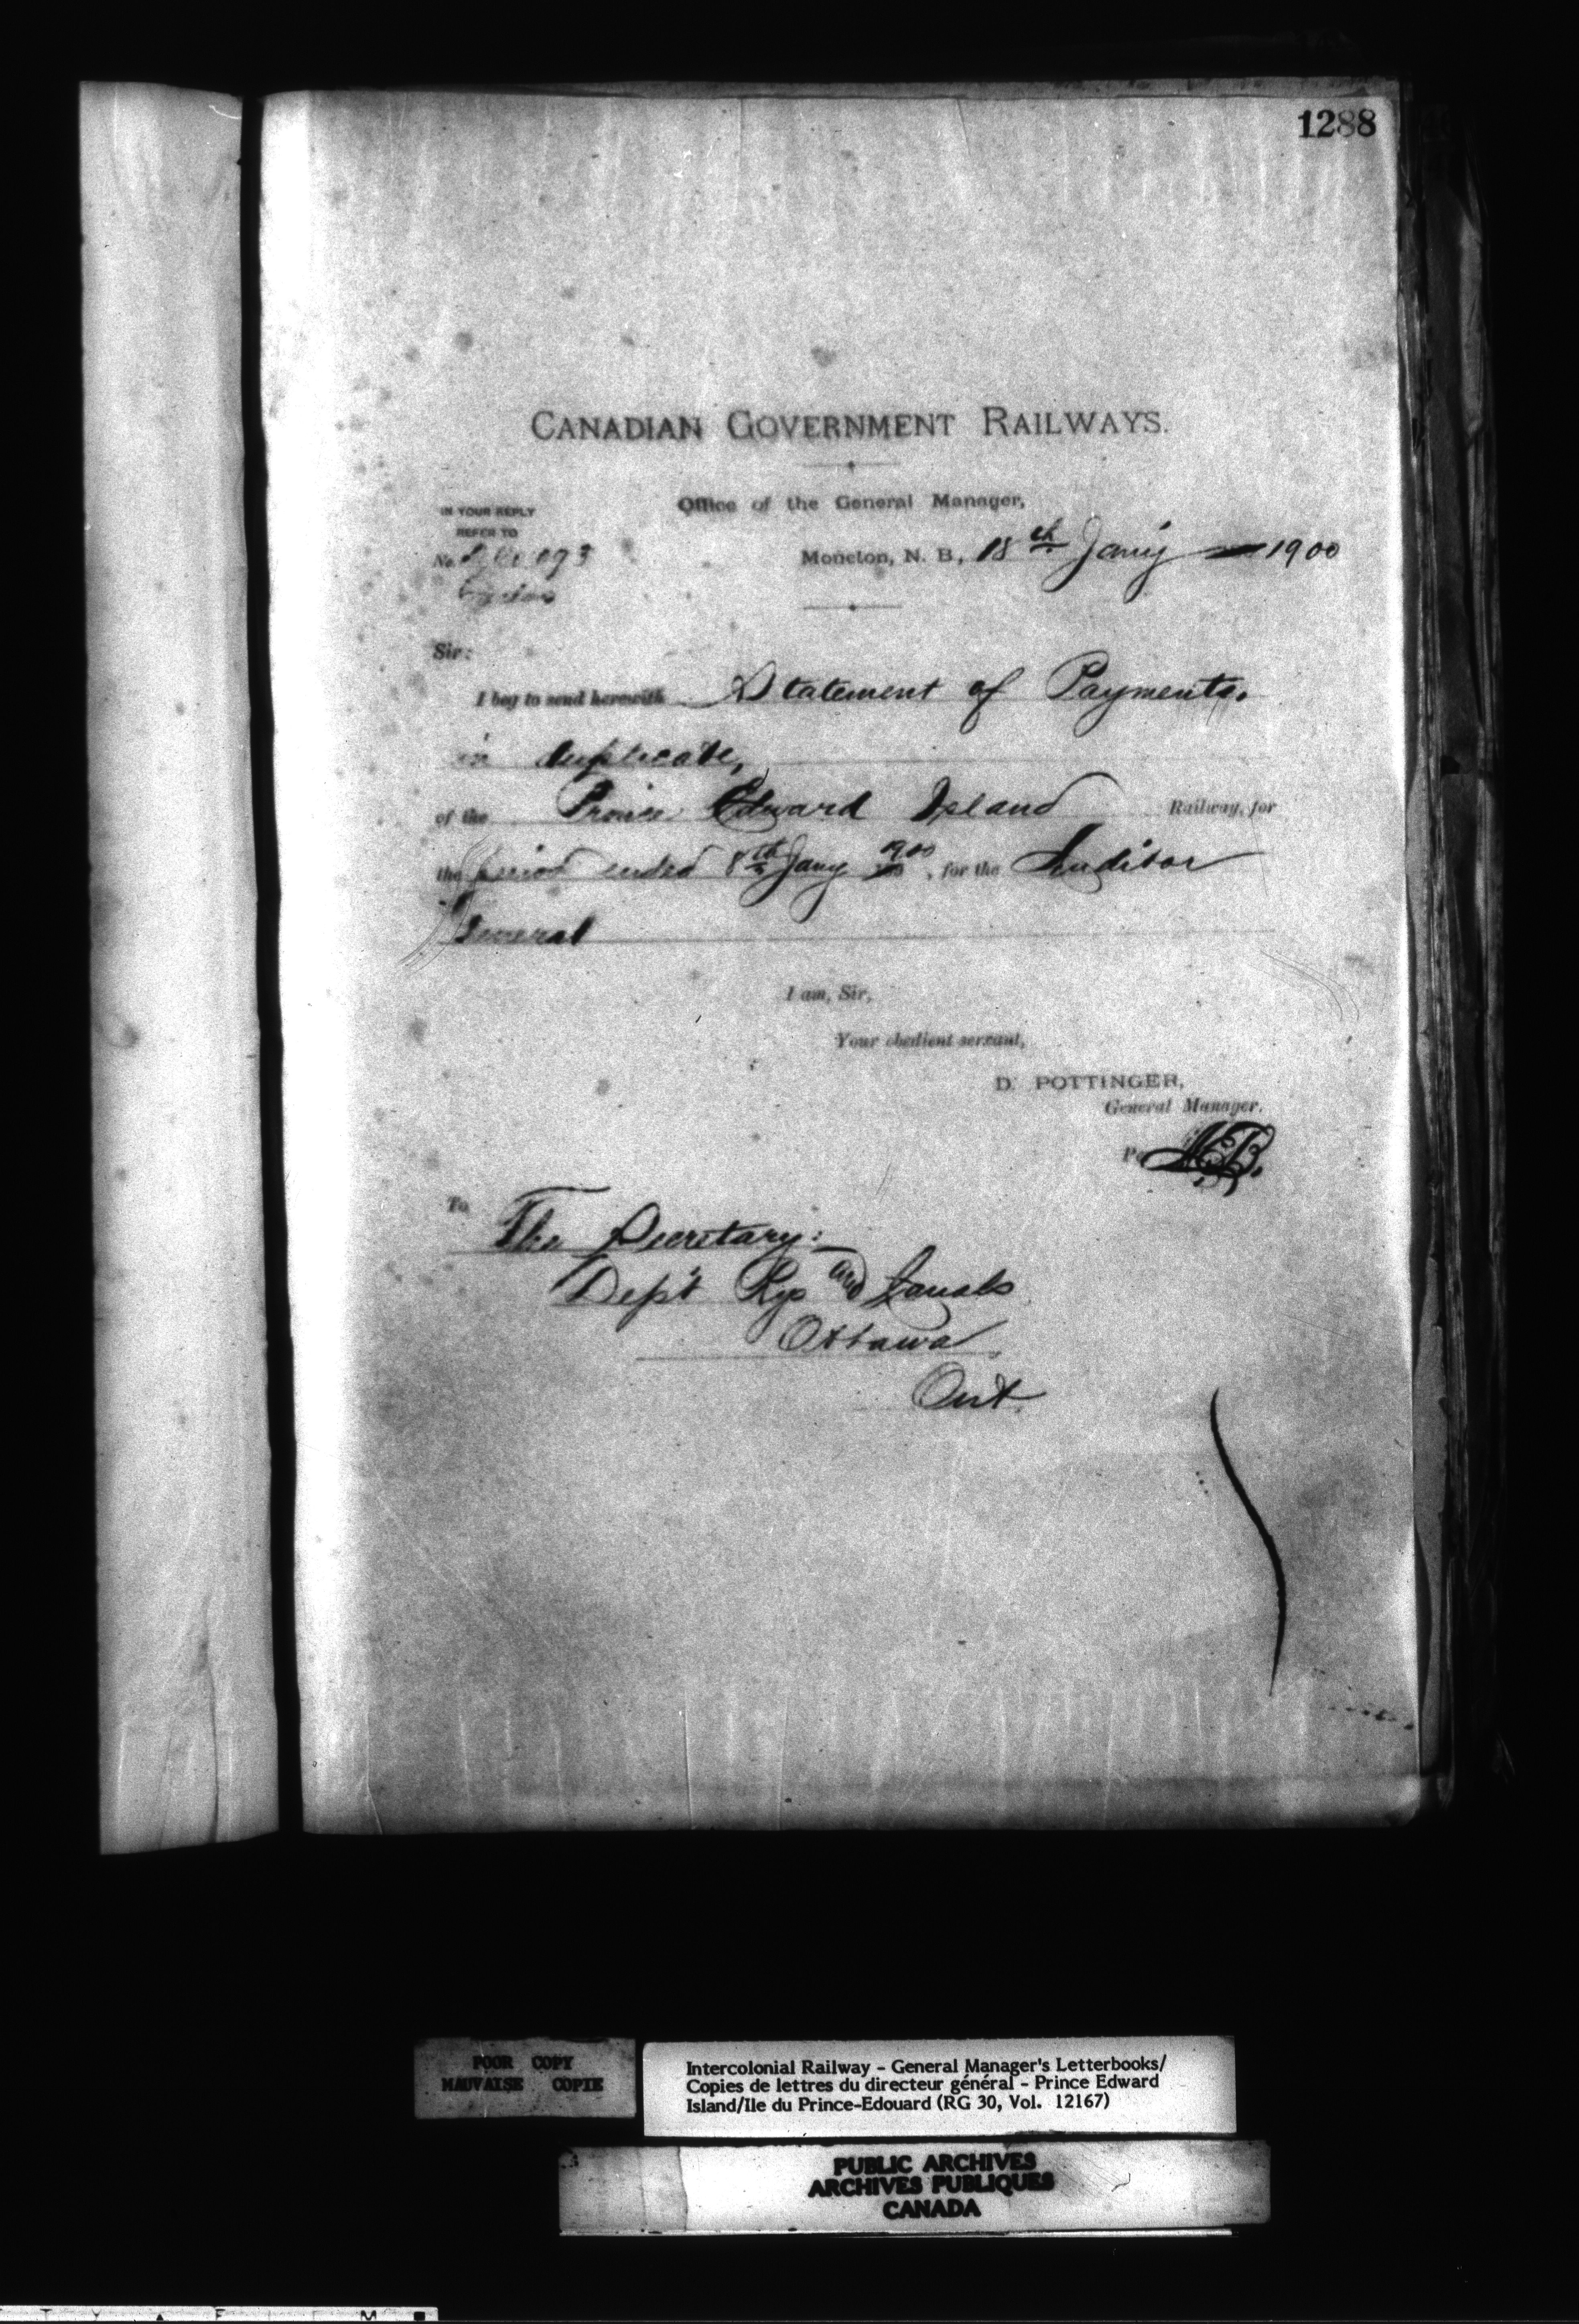 1288
CANADIAN GOVERNMENT RAILWAYS.
Office of the General Manager,
IN YOUR REPLY
REFER TO
No.
Moncton, N. B., 18th Jany 1900
Sir:
I beg to send herewith Statement of Payments.
in duplicate,
of the Prince Edward Island Railway, for
the period ended 8th Jany 1900, for the Auditor
General
I am, Sir,
Your obedient servant,
D. POTTINGER,
General Manager.
Per
To
The Secretary:
Dep't Rys and Canals
Ottawa
Ont.
POOR COPY
MAUVAISE COPIE
Intercolonial Railway - General Manager's Letterbooks/
Copies de lettres du directeur général - Prince Edward
Island/Ile du Prince-Edouard (RG 30, Vol. 12167)
PUBLIC ARCHIVES
ARCHIVES PUBLIQUES
CANADA